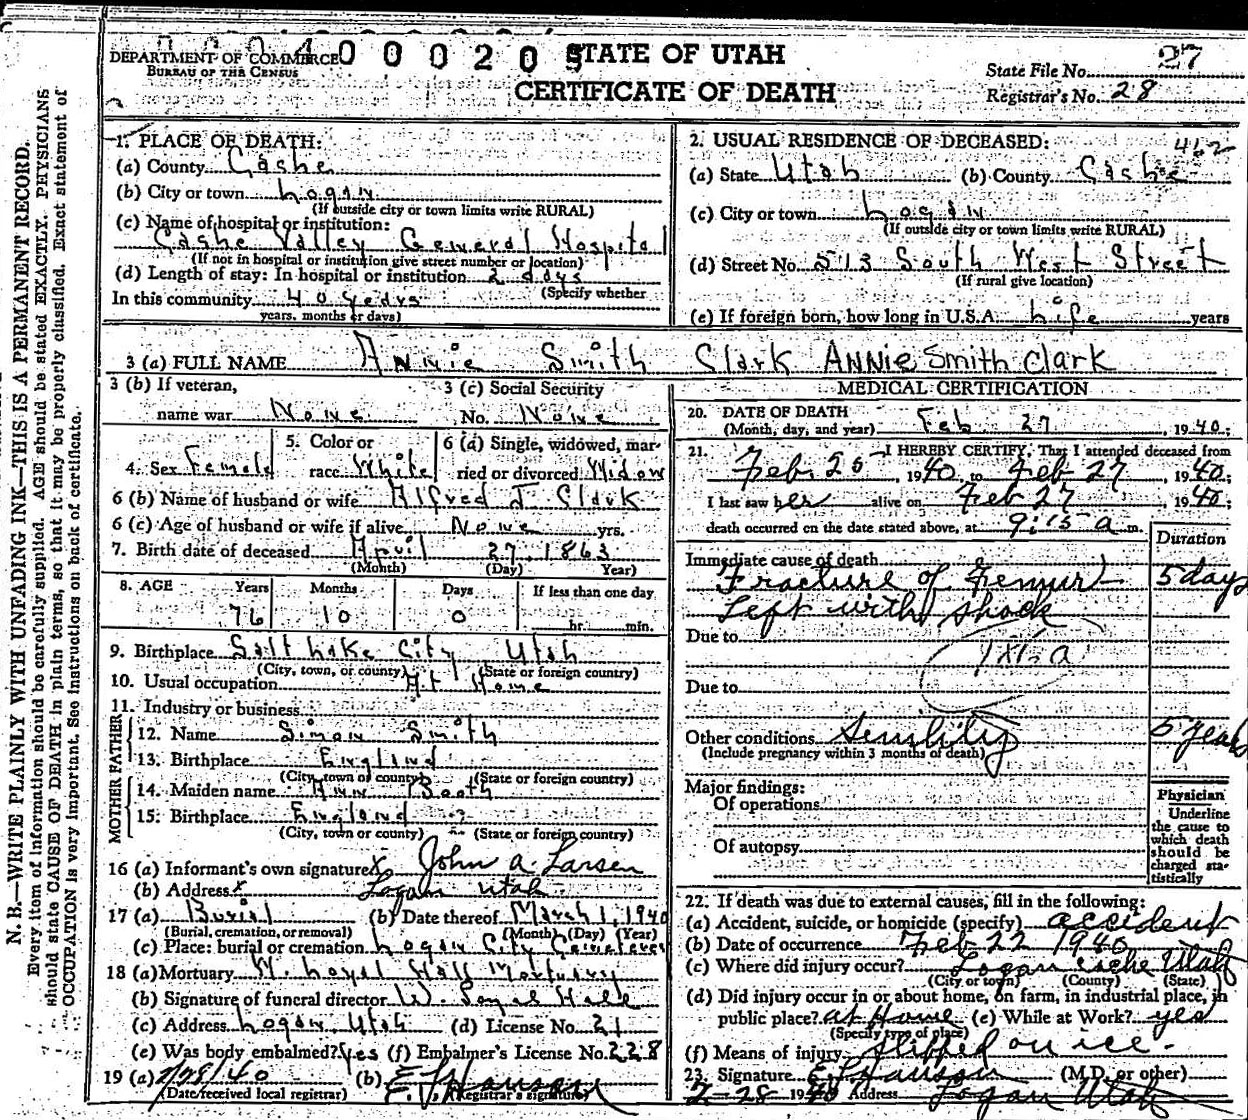 DEPARTMENT OF COMMERCE
BUREAU OF THE CENSUS
0 0 0 2 0 5
STATE OF UTAH
CERTIFICATE OF DEATH
State File No. 27
Registrar's No. 28
N. B.—WRITE PLAINLY WITH UNFADING INK—THIS IS A PERMANENT RECORD.
Every item of information should be carefully supplied. AGE should be stated EXACTLY. PHYSICIANS
should state CAUSE OF DEATH in plain terms, so that it may be properly classified. Exact statement of
OCCUPATION is very important. See instructions on back of certificate.
1. PLACE OF DEATH:
(a) County Cache
(b) City or town Logan
(If outside city or town limits write RURAL)
(c) Name of hospital or institution:
Cache Valley General Hospital
(If not in hospital or institution give street number or location)
(d) Length of stay: In hospital or institution 2 days
(Specify whether
In this community 40 years
years, months or days)
2. USUAL RESIDENCE OF DECEASED: 462
(a) State Utah (b) County Cache
(c) City or town Logan
(If outside city or town limits write RURAL)
(d) Street No. 513 South West Street
(If rural give location)
(e) If foreign born, how long in U.S.A. Life years
3 (a) FULL NAME Annie Smith Clark ANNIE Smith Clark
3 (b) If veteran,
name war None
3 (c) Social Security
No. None
4. Sex Female
5. Color or
race White
6 (a) Single, widowed, mar-
ried or divorced Widow
6 (b) Name of husband or wife Alfred J. Clark
6 (c) Age of husband or wife if alive None yrs.
7. Birth date of deceased April 27, 1863
(Month) (Day) Year)
8. AGE Years Months Days If less than one day
76 10 0 hr. min.
9. Birthplace Salt Lake City Utah
(City, town, or county) (State or foreign country)
10. Usual occupation At Home
11. Industry or business
FATHER
12. Name Simon Smith
13. Birthplace England
(City, town or county) (State or foreign country)
MOTHER
14. Maiden name Ann Booth
15. Birthplace England
(City, town or county) (State or foreign country)
16 (a) Informant's own signature x John A. Larsen
(b) Address x Logan Utah
17 (a) Burial (b) Date thereof March 1, 1940
(Burial, cremation, or removal) (Month) (Day) (Year)
(c) Place: burial or cremation Logan City Cemetery
18 (a) Mortuary W. Loyal Hall Mortuary
(b) Signature of funeral director W. Loyal Hall
(c) Address Logan Utah (d) License No. 21
(e) Was body embalmed? Yes (f) Embalmer's License No. 228
19 (a) 2/28/40 (b) E. J. Hansen
(Date received local registrar) (Registrar's signature)
MEDICAL CERTIFICATION
20. DATE OF DEATH
(Month, day, and year) Feb 27, 1940;
21. I HEREBY CERTIFY, That I attended deceased from
Feb. 25, 1940 to Feb 27, 1940.
I last saw her alive on Feb 27, 1940;
death occurred on the date stated above, at 9:15 a m.
Duration
Immediate cause of death
Fracture of Femur 5 days
Left with shock
Due to
Due to
Other conditions Sensility 5 years
(Include pregnancy within 3 months of death)
Major findings:
Of operations
Of autopsy
Physician
Underline
the cause to
which death
should be
charged sta-
tistically
22. If death was due to external causes, fill in the following:
(a) Accident, suicide, or homicide (specify) accident
(b) Date of occurrence Feb 22 1940
(c) Where did injury occur? Logan Cache Utah
(City or town) (County) (State)
(d) Did injury occur in or about home, on farm, in industrial place, in
public place? at Home (e) While at Work? yes
(Specify type of place)
(f) Means of injury slipped on ice.
23. Signature E. J. Hanson (M.D. or other)
2-28 1940 Address Logan Utah